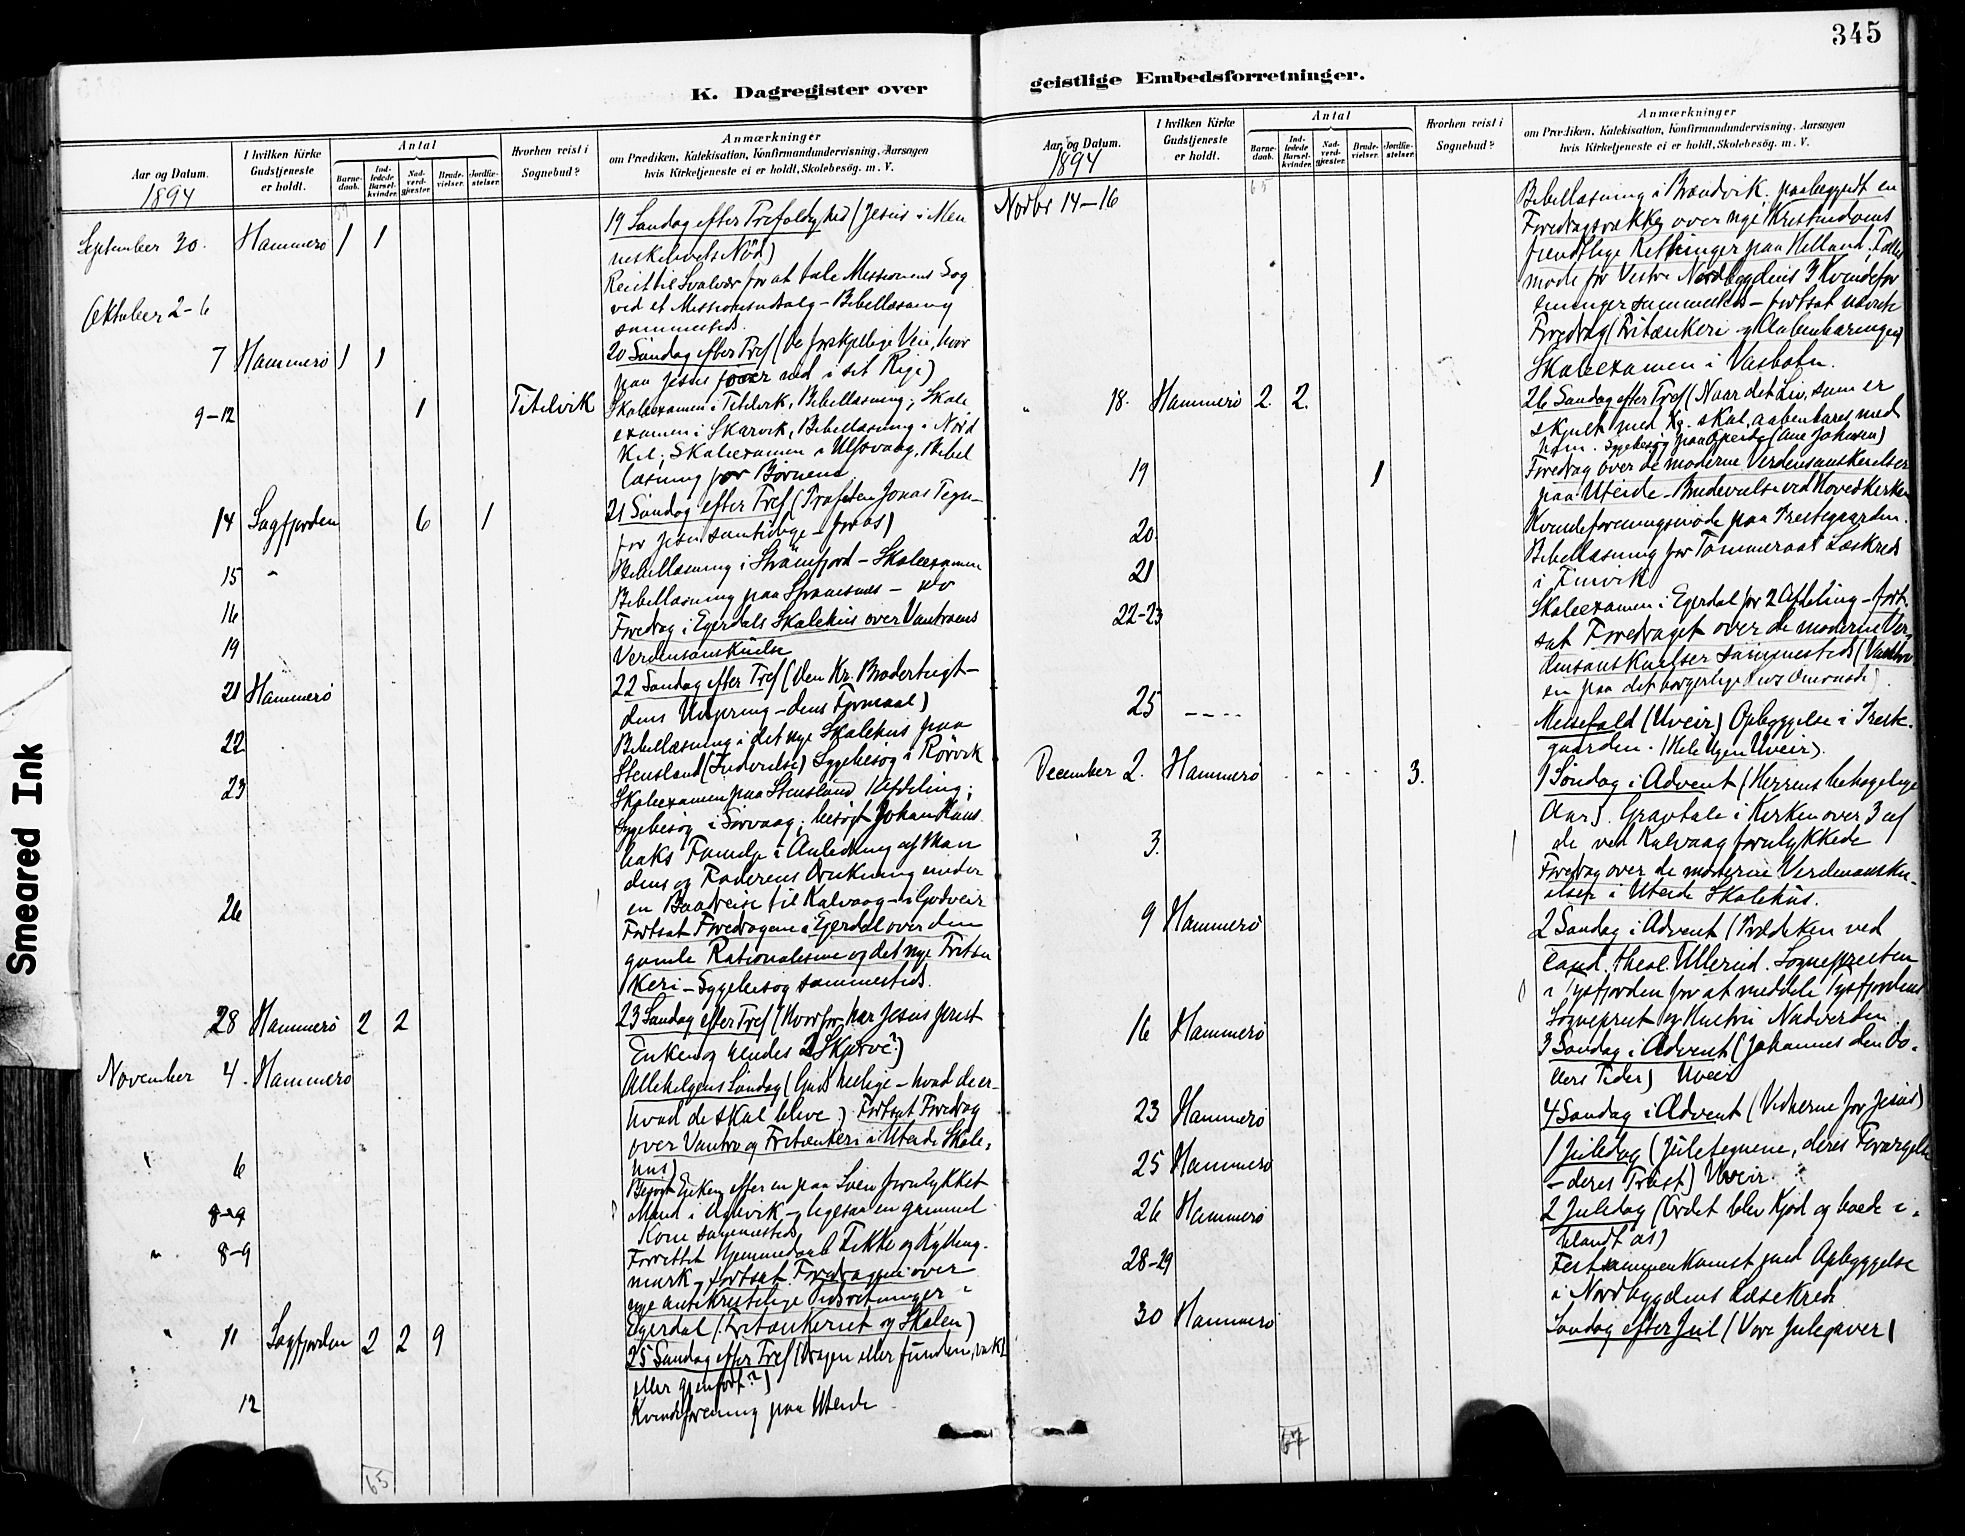 345
K. Dagregister over
geistlige Embedsforretninger.
Aar og Datum.
1894
I hvilken Kirke
Gudstjeneste
er holdt.
Antal
Barne-
daab.
Ind-
ledede
Barsel-
kvinder.
Nad-
verd-
gjester
Brude-
vielser.
Jordfæ-
stelser
Hvorhen reist i
Sognebud?
Anmærkninger
om Prædiken, Katekisation, Konfirmandundervisning, Aarsagen
hvis Kirketjeneste ei er holdt, Skolebesøg. m. V.
September 30. Hammerø 1 1
19 Søndag efter Trefoldighed (Jesus i Men
neskelivets Nød)
Oktober 2-6
Reist til Svolvær for at tale Missionens Sag
ved et Missionsudsalg - Bibellæsning
sammesteds.
7 Hammerø 1 1
20 Søndag efter Tref (De forskjellige Veie, hvor
paa Jesus fører ind i sit Rige)
9-12 1 Tilelvik
Skoleexamen i Tilelvik, Bibellæsning; Skole
examen i Skarvik, Bibellæsning i Nord
Kil; Skoleexamen i Ulsvaag, Bibel
læsning for Børnene
14 Sagfjorden 6 1
21 Søndag efter Tref (Profeten Jonas Tegn-
for Jesu samtidige - for os)
15 "
Bibellæsning i - Skoleexamen
16
Bibellæsning paa - do
19
Foredrag i Egerdals Skolehus over Vantroens
Verdensanskuelse
21 Hammerø
22 Søndag efter Tref (Den Kr. Brodertugt-
dens Udspring - dens Formaal)
22
Bibellæsning i det nye Skolehus paa
Stensland (Indvielse) Sygebesøg i Rørvik
23
Skoleexamen paa Stensland 1 Afdeling;
Sygebesøg i Sørvaag; besøgt Johan Hans
baks Familje i Anledning af Man
dens og Faderens Drukning under
en Baadreise til Kalvaag - i Godveir
26
Fortsat Foredragene i Egerdal over den
gamle Rationalisme og det nye Fritæn
keri - Sygebesøg sammesteds.
28 Hammerø 2 2
23 Søndag efter Tref (Hvorfor har Jesus prist
Enken og hendes 2 Skjærve?)
November 4. Hammerø
Allehelgens Søndag (Guds hellige - hvad de er-
hvad de skal blive). Fortsat Foredrag
over Vantro og Fritænkeri i Uteide Skole-
hus)
6
Besøgt Enken efter en paa Sven forulykket
8-9
Mand i - ligesaa en gammel
Kone sammesteds
" 8-9
Forrettet Hjemmedaab
mark, fortsat Foredragene over
nye antikristelige Tidsretninger i
Egerdal (Fritænkeriet og Skolen)
" 11 Sagfjorden 2 2 9
25 Søndag efter Tref (Dragen eller funden, vakt
eller gjenfødt?)
12
Kvindeforening paa Uteide
65
Aar og Datum.
1894
I hvilken Kirke
Gudstjeneste
er holdt.
Antal
Barne-
daab.
Ind-
ledede
Barsel-
kvinder.
Nad-
verd-
gjester.
Brude-
vielser.
Jordfæ-
stelser.
Hvorhen reist i
Sognebud?
Anmærkninger
om Prædiken, Katekisation, Konfirmandundervisning, Aarsagen
hvis Kirketjeneste ei er holdt, Skolebesøg. m. V.
65
Novbr 14-16
Bibellæsning i Brændvik, paabegyndt en
Foredragsrække over nye Kristendoms
fiendtlige Retninger paa Helland, Fælles
møde for Vestre Nordbygdens 3 Kvindefor
eninger sammesteds - fortsat
Foredrag (Fritænkeri og Aabenbaringen)
Skoleexamen i Vasbotn.
" 18. Hammerø 2. 2.
26 Søndag efter Tref (Naar det Liv, som er
skjult med Kr. skal aabenbares med
ham. Sygebesøg paa (Ane Johnsen)
19 1
Foredrag over de moderne Verdensanskuelser
paa Uteide - Brudevielse ved Hovedkirken
20
Kvindeforeningsmøde paa Prestegaarden.
21
Bibellæsning for Tømmeraas Læskreds
i Finvik
22-23
Skoleexamen i Egerdal for 2 Afdeling - fort-
sat Foredraget over de moderne Ver-
densanskuelser sammesteds (Vantro
en paa det borgerlige Livs Omraade)
25 ----
Messefald (Uveir) Opbyggelse i Preste-
gaarden. (Hele Ugen Uveir).
December 2. Hammerø 3.
1 Søndag i Advent (Herrens behagelige
Aar). Gravtale i Kirken over 3 af
de ved Kalvaag forulykkede
3.
Foredrag over de moderne Verdensansku-
elser i Uteide Skolehus.
9 Hammerø
2 Søndag i Advent (Prædiken ved
Cand. theol. Ullerud. Sognepresten
i Tysfjorden for at meddele Tysfjordens
Sogneprest og Hustru Nadverden
16 Hammerø
3 Søndag i Advent (Johannes den Dø-
bers Tider) Uveir
23 Hammerø
4 Søndag i Advent (Vidnerne for Jesus)
25 Hammerø
1 Juledag (Juletegnene, deres Forargelse
- deres Trøst) Uveir.
26 Hammerø
2 Juledag (Ordet blev Kjød og boede i-
blandt os)
28-29
Festsammenkomst med Opbyggelse
i Nordbygdens Læsekreds
30 Hammerø
Søndag efter Jul (Vore Julegaver)
67
Smeared Ink